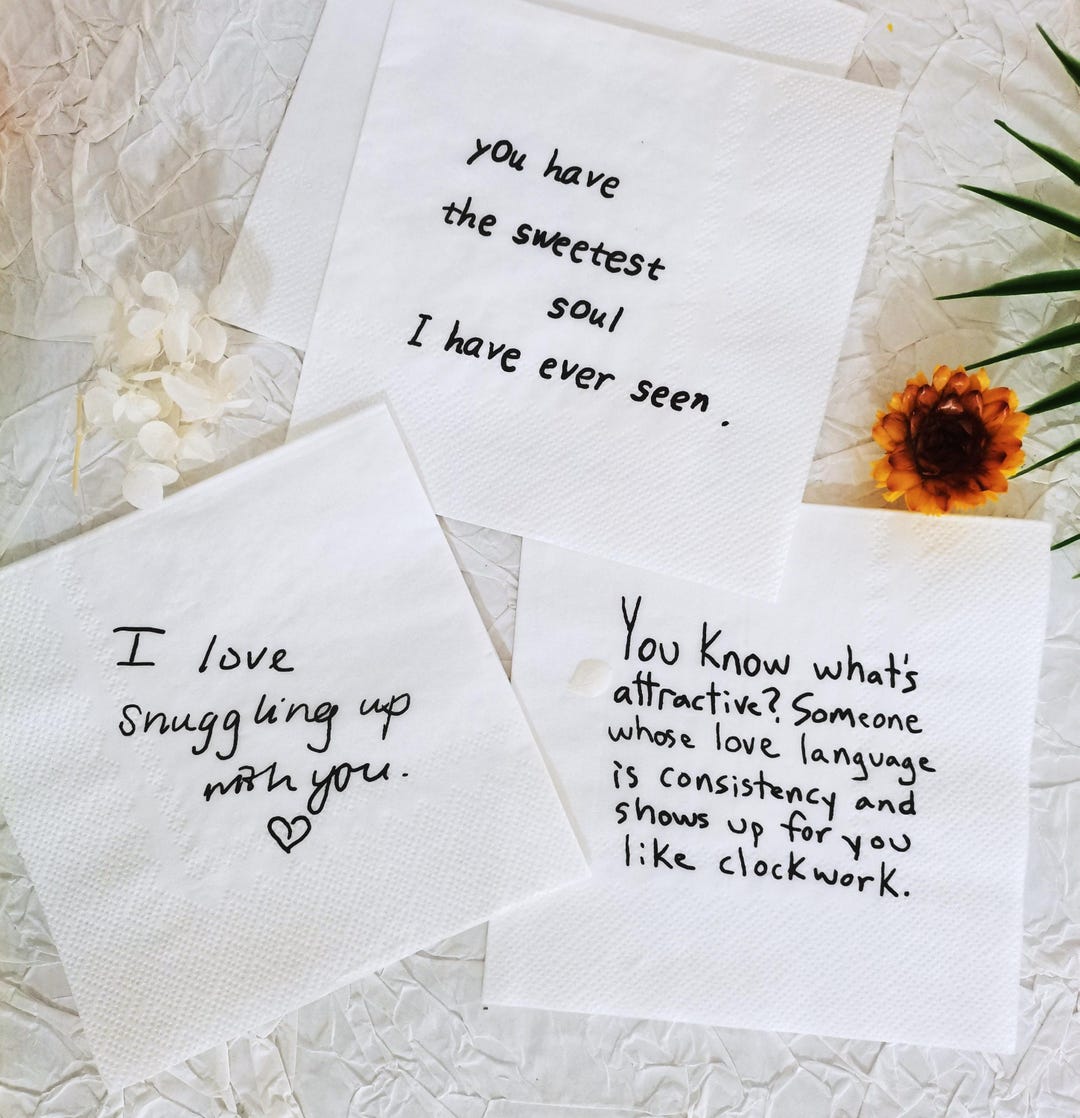 you have
the sweetest
soul
I have ever seen.
I love
snuggling up
with you.
You Know what's
attractive? Someone
whose love language
is consistency and
shows up for you
like clockwork.